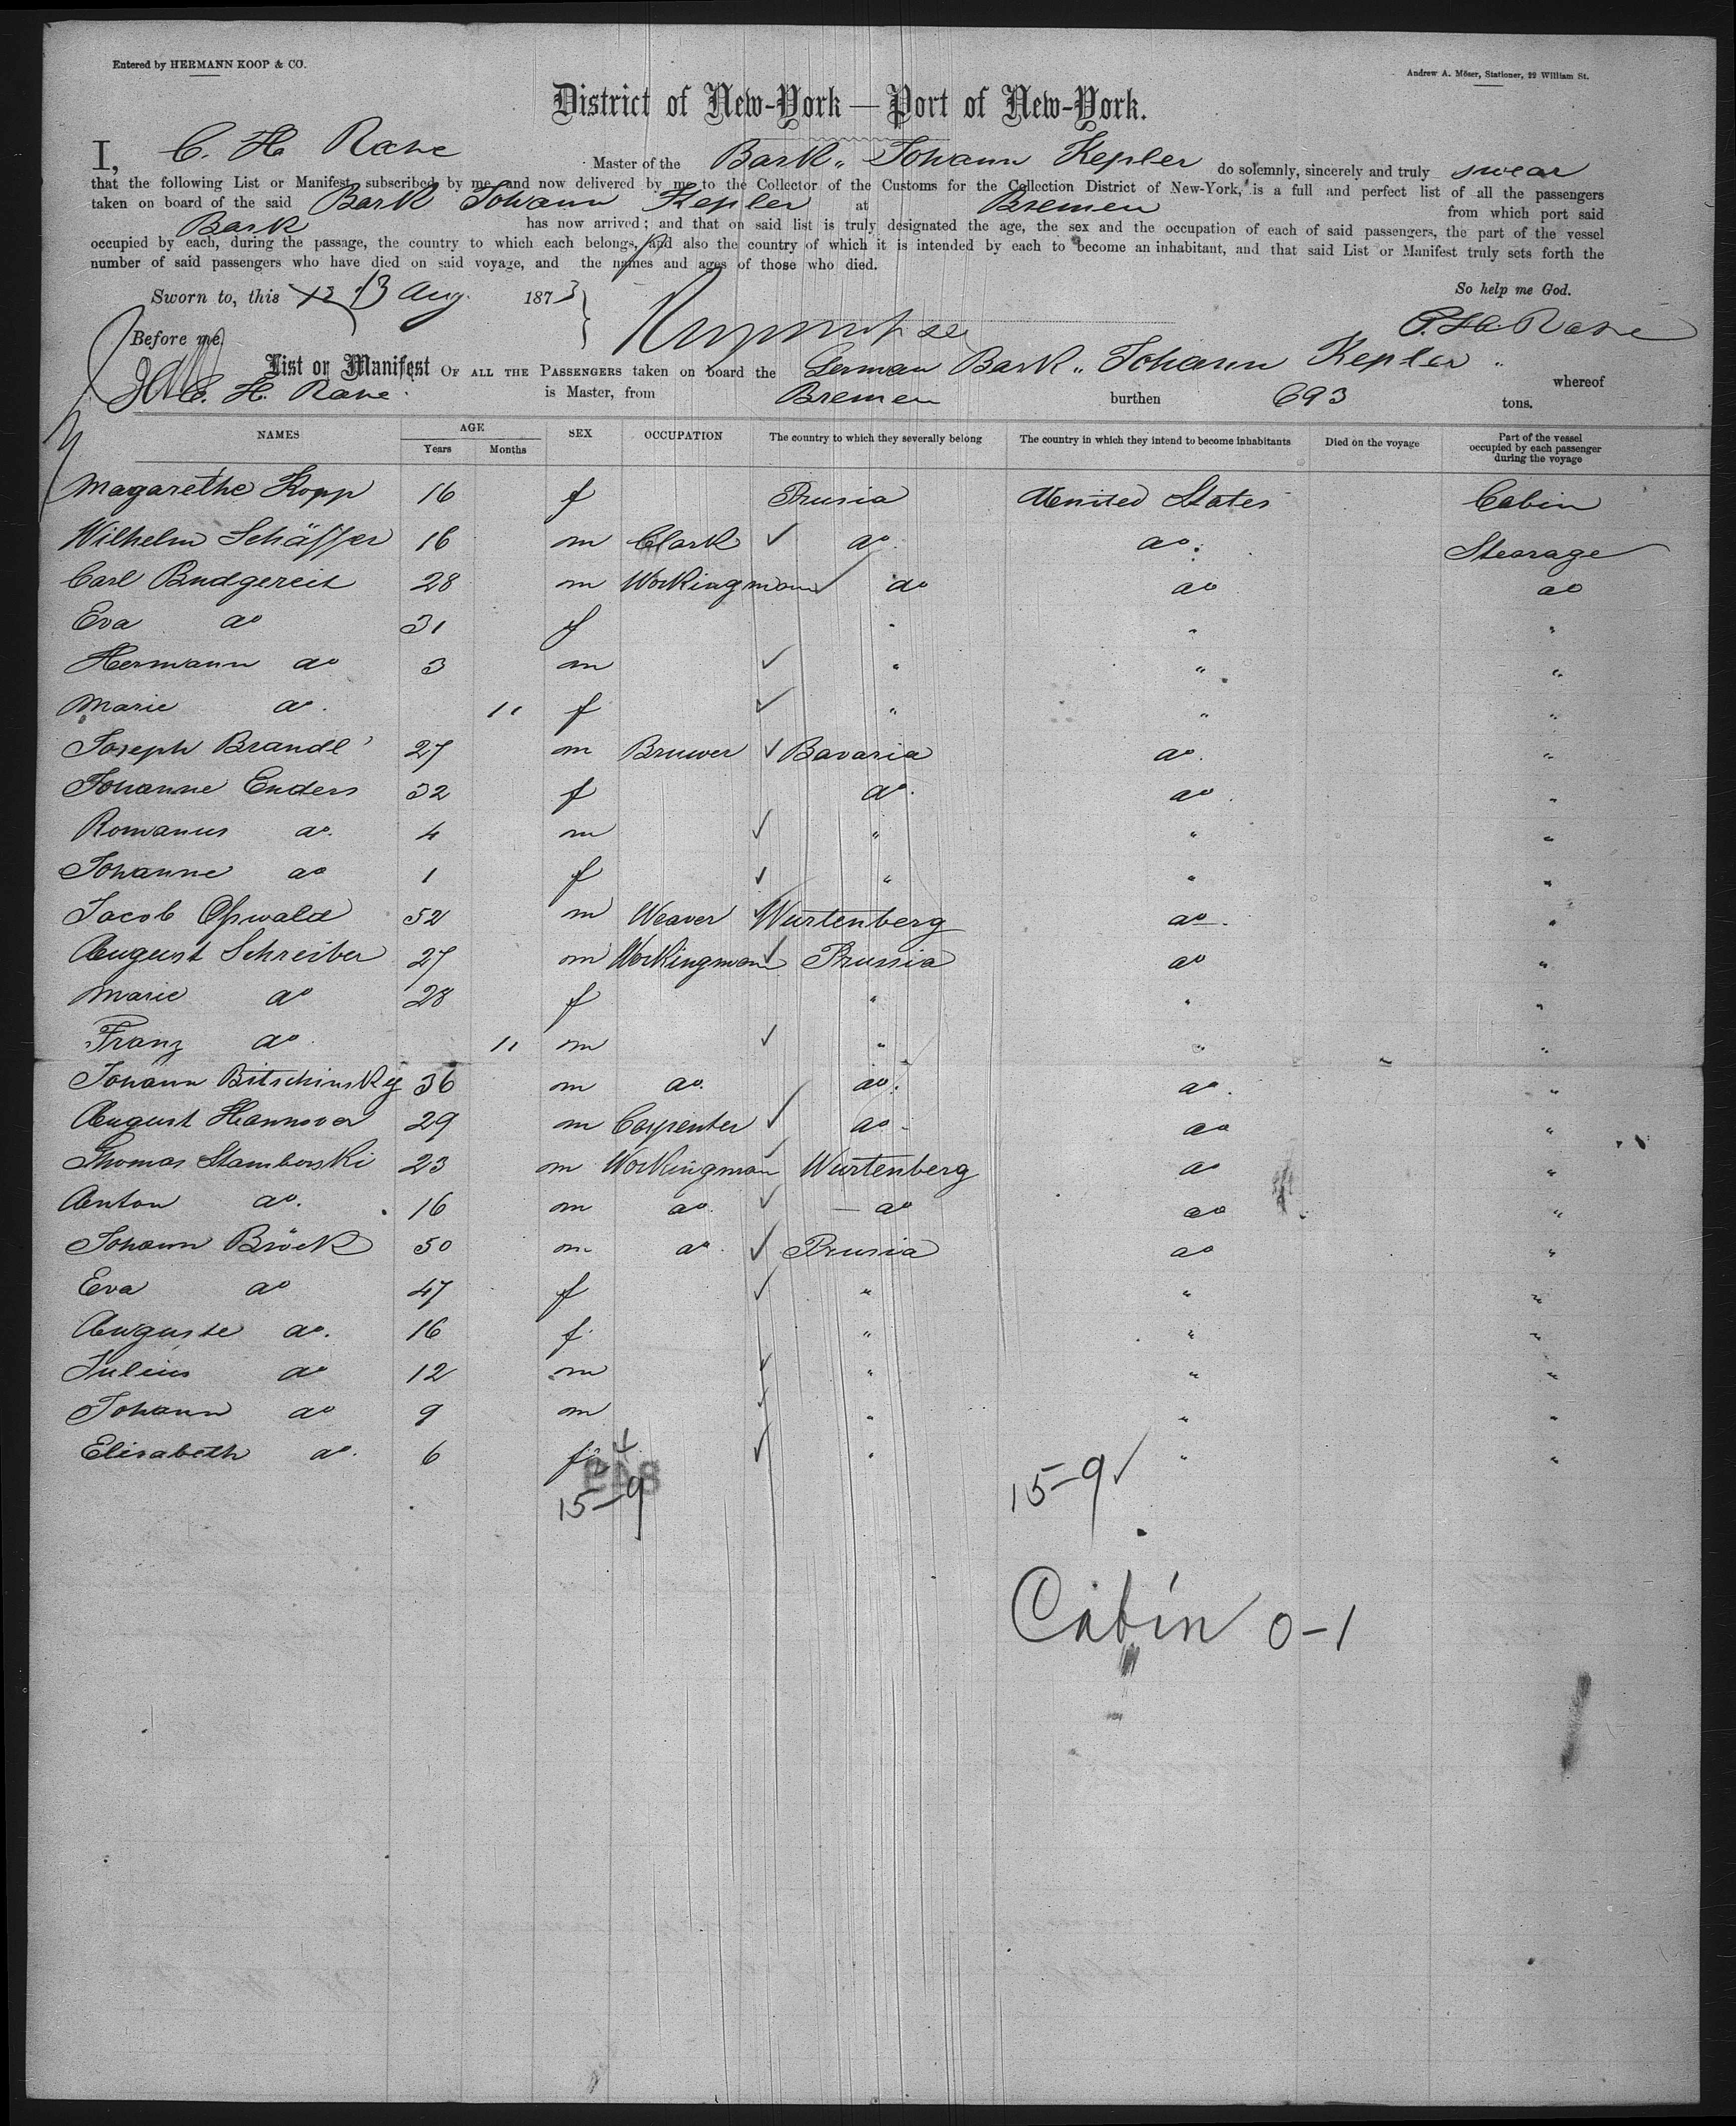 Entered by HERMANN KOOP & CO.
Andrew A. Möser, Stationer, 22 William St.
District of New-York — Port of New-York.
I, C. H. Rave Master of the Bark „ Johann Kepler do solemnly, sincerely and truly swear
that the following List or Manifest, subscribed by me, and now delivered by me to the Collector of the Customs for the Collection District of New-York, is a full and perfect list of all the passengers
taken on board of the said Bark Johann Kepler at Bremen from which port said
Bark has now arrived; and that on said list is truly designated the age, the sex and the occupation of each of said passengers, the part of the vessel
occupied by each, during the passage, the country to which each belongs, and also the country of which it is intended by each to become an inhabitant, and that said List or Manifest truly sets forth the
number of said passengers who have died on said voyage, and the names and ages of those who died.
Sworn to, this 13 Aug. 1873 So help me God.
Before me, C. H. Rave
List or Manifest OF ALL THE PASSENGERS taken on board the German Bark „ Johann Kepler " whereof
C. H. Rave. is Master, from Bremen burthen 693 tons.
NAMES AGE Years Months SEX OCCUPATION The country to which they severally belong The country in which they intend to become inhabitants Died on the voyage Part of the vessel occupied by each passenger during the voyage
Magarethe Kopp 16 f Prusia United States Cabin
Wilhelm Schäffer 16 m Clark do. do. Stearage
Carl Budgereit 28 m Workingman do do do
Eva do 31 f " " "
Hermann do 3 m " " "
Marie do. 11 f " " "
Joseph Brandl 27 m Bruwer Bavaria do. "
Johanne Enders 32 f do. do. "
Romanus do. 4 m " " "
Johanne do 1 f " " "
Jacob Oßwald 52 m Weaver Wurtenberg do. "
August Schreiber 27 m Workingman Prussia do "
Marie do 28 f " " "
Franz do 11 m " " "
Johann Bitschinsky 36 m do. do. do. "
August Hannover 29 m Carpenter do do "
Thomas Stamborski 23 m Workingman Wurtenberg do "
Anton do. 16 m do. do do "
Johann Bröck 50 m do. Prusia do "
Eva do 47 f " " "
Auguste do. 16 f. " " "
Julius do 12 m " " "
Johann do 9 m " " "
Elisabeth do. 6 f " " "
15–9 15–9
Cabin 0–1